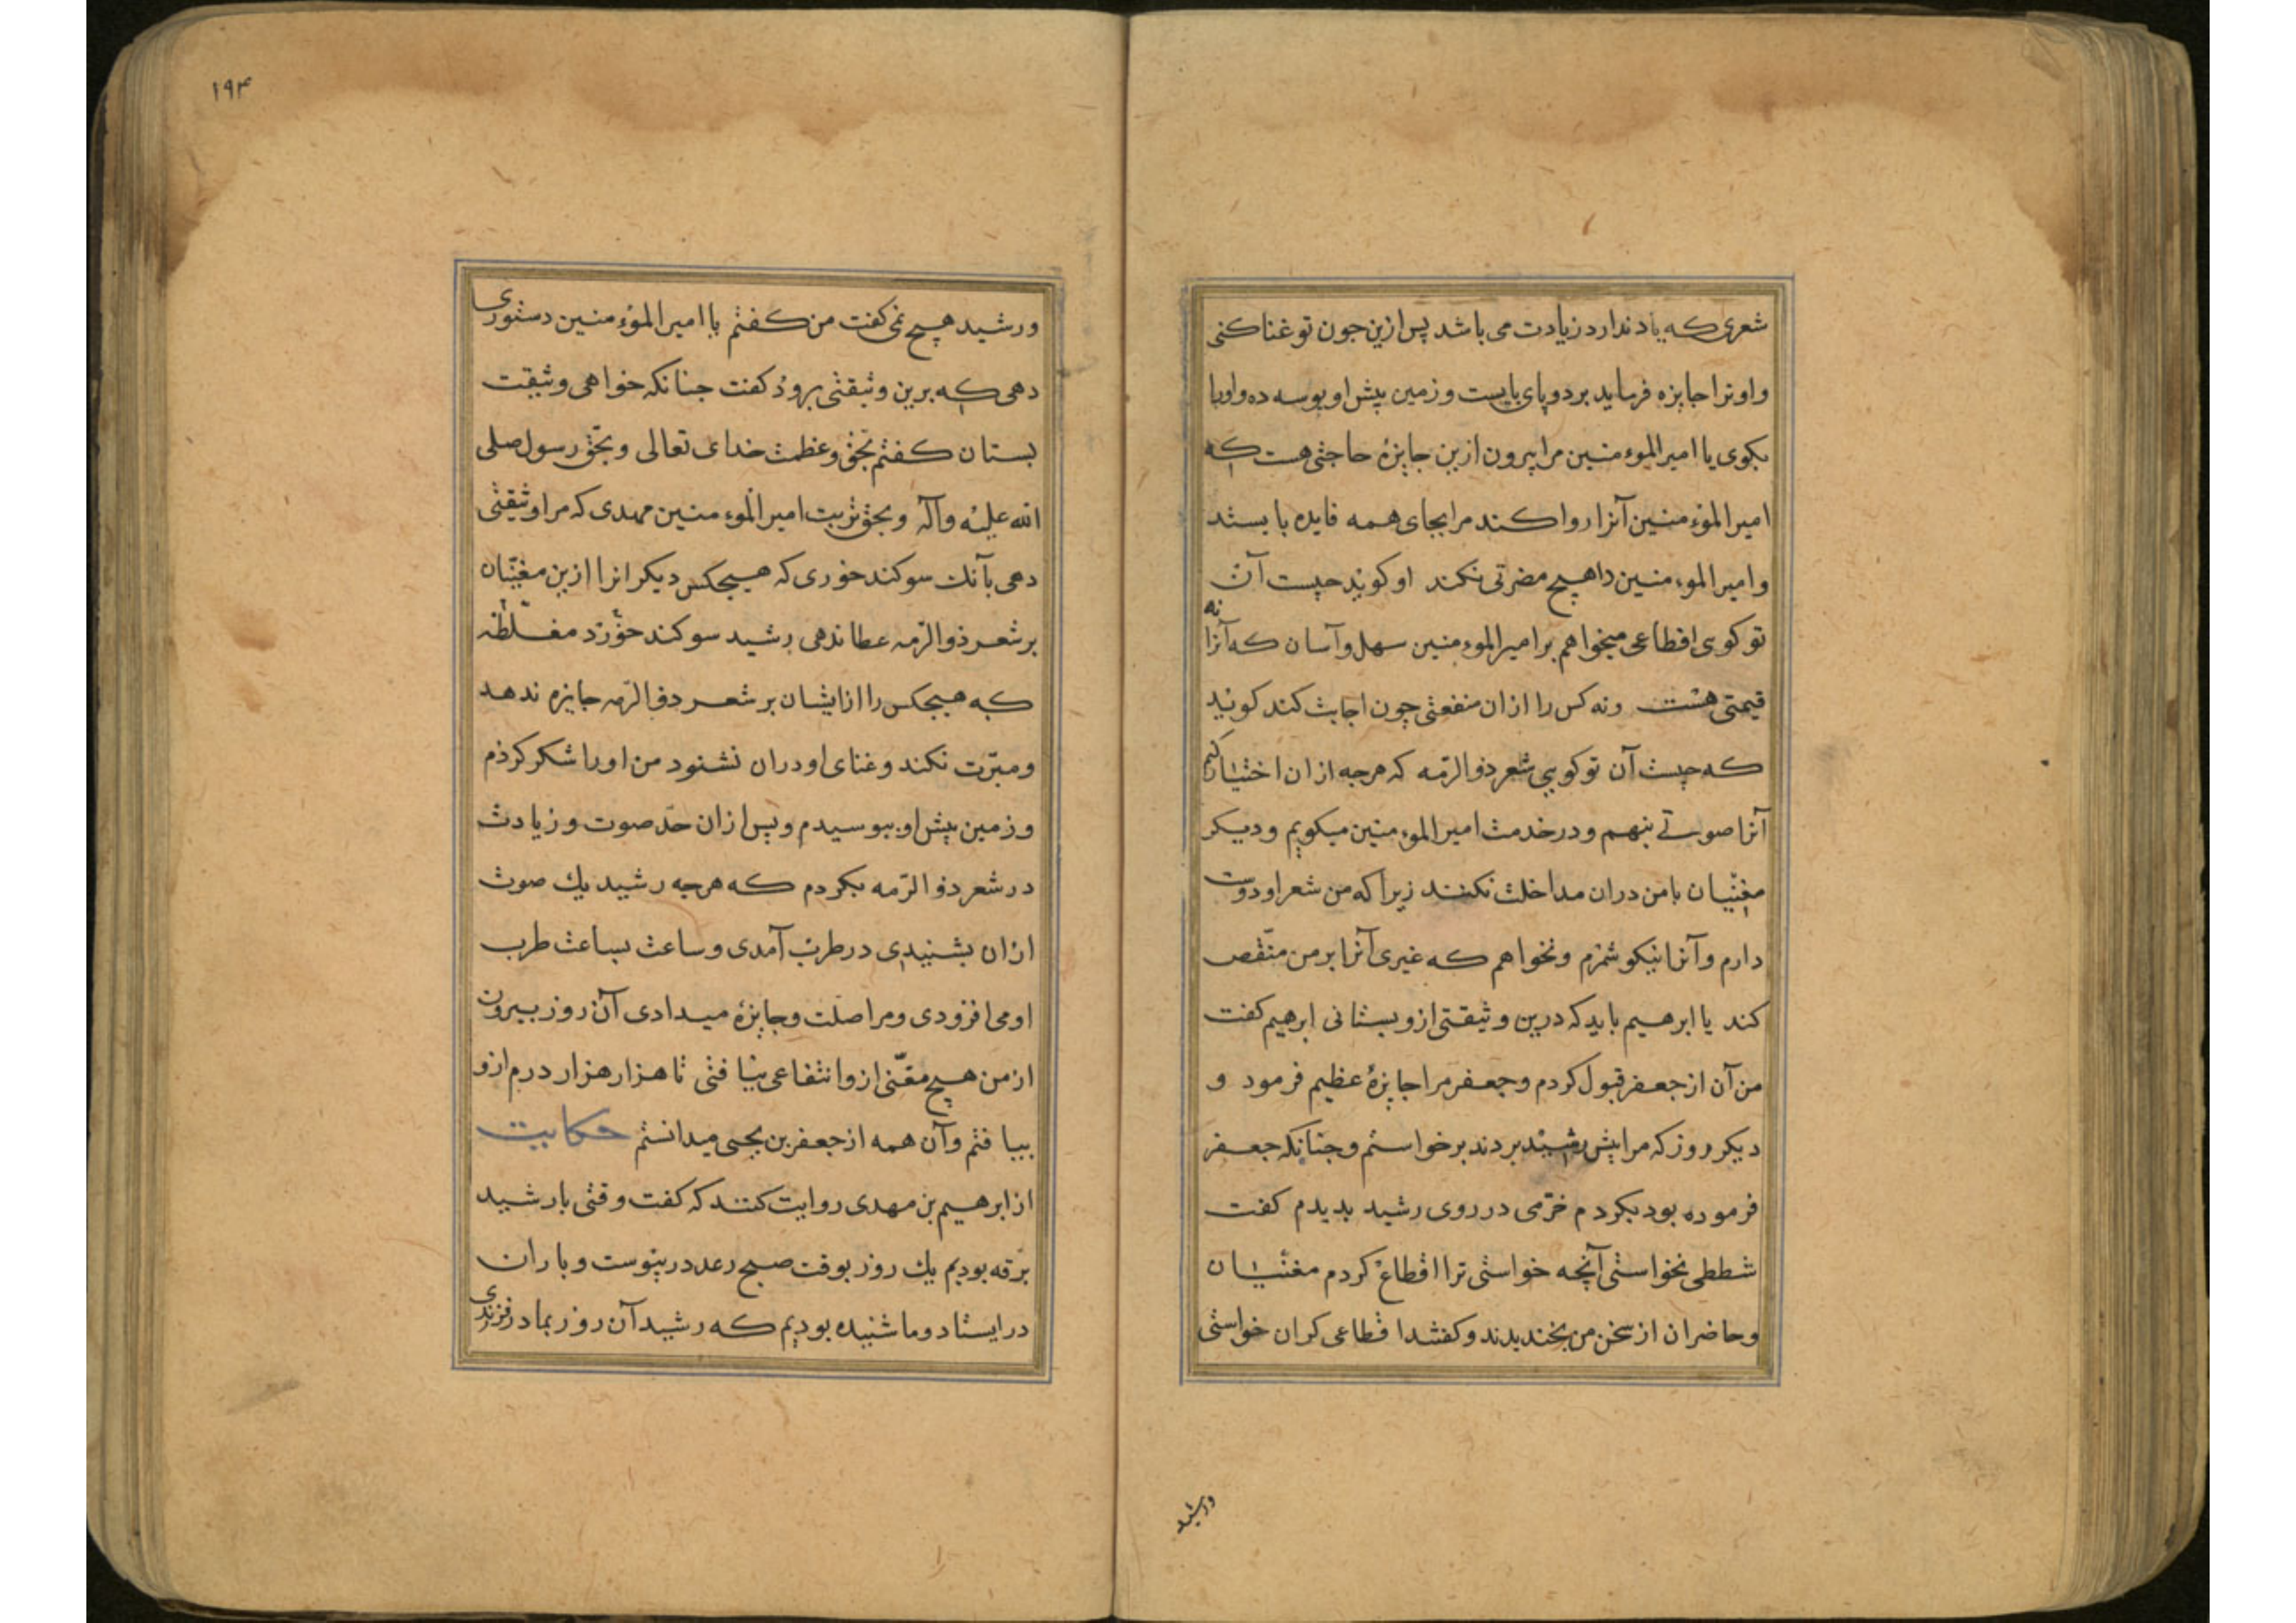 شعری که یاد ندارد زیادت می باشد پس ازین جون تو غنا کنی
واو ترا جایزه فرماید بر دو پای بایست و زمین پیش او بوسه ده و اورا
بکوی یا امیر الموءمنین مرا بیرون ازین جایزهٔ حاجتی هست که
امیر الموءمنین آنرا روا کند مرا بجای همه فایده بایستد
وامیر الموءمنین را هیچ مضرتی نکند او کوید چیست آن
تو کوی اقطاعی میخواهم بر امیر الموءمنین سهل وآسان که آنرا نه
قیمتی هست ونه کس را ازان منفعتی چون اجابت کند کوید
که چیست آن تو کویی شعر ذو الرّمه که هرجه ازان اختیار کنم
آنرا صوتے بنهم ودر خدمت امیر الموءمنین میکویم ودیکر
مغنّیان با من دران مداخلت نکنند زیرا که من شعر او دوست
دارم وآنرا نیکو شمرم ونخواهم که غیری آنرا بر من منقّص
کند یا ابرهیم باید که درین وثیقتی ازو بستانی ابرهیم کفت
من آن از جعفر قبول کردم وجعفر مرا جایزهٔ عظیم فرمود و
دیکر روز که مرا پیش رشید بردند برخواستم وجنانکه جعفر
فرموده بود بکردم خرّمی در روی رشید بدیدم کفت
شططی نخواستی آنچه خواستی ترا اقطاع کردم مغنّیان
وحاضران از سخن من بخندیدند وکفتند اقطاعی کران خواستی
ورشید
۱۹۴
ورشید هیچ نمی کفت من کفتم یا امیر الموءمنین دستوری
دهی که برین وثیقتی برود کفت جنانکه خواهی وثیقت
بستان کفتم بحّق وعظمت خدای تعالی وبحّق رسول صلی
الله علیه وآله وبحق تربت امیر الموءمنین مهدی که مرا وثیقتی
دهی بآنک سوکند خوری که هیجکس دیکر انرا ازین مغنّیان
بر شعر ذو الرّمه عطا ندهی رشید سوکند خورد مغلّظه
که هیجکس را ازایشان بر شعر ذو الرّمه جایزه ندهد
ومبرّت نکند وغنای او دران نشنود من اورا شکر کردم
وزمین پیش او ببوسیدم وپس ازان حدّ صوت وزیادت
در شعر ذو الرّمه بکردم که هرجه رشید یك صوت
ازان بشنیدی در طرب آمدی وساعت بساعت طرب
او می افزودی ومرا صلت وجایزهٔ میدادی آن روز بیرون
از من هیچ مغنّی ازو انتفاعی نیافتی تا هزار هزار درم ازو
بیافتم وآن همه از جعفر بن یحیی میدانستم حکایت
از ابرهیم بن مهدی روایت کنند که کفت وقتی با رشید
برقه بودیم یك روز بوقت صبح رعد در پیوست وباران
در ایستاد وما شنیده بودیم که رشید آن روز بمادر فرزندی